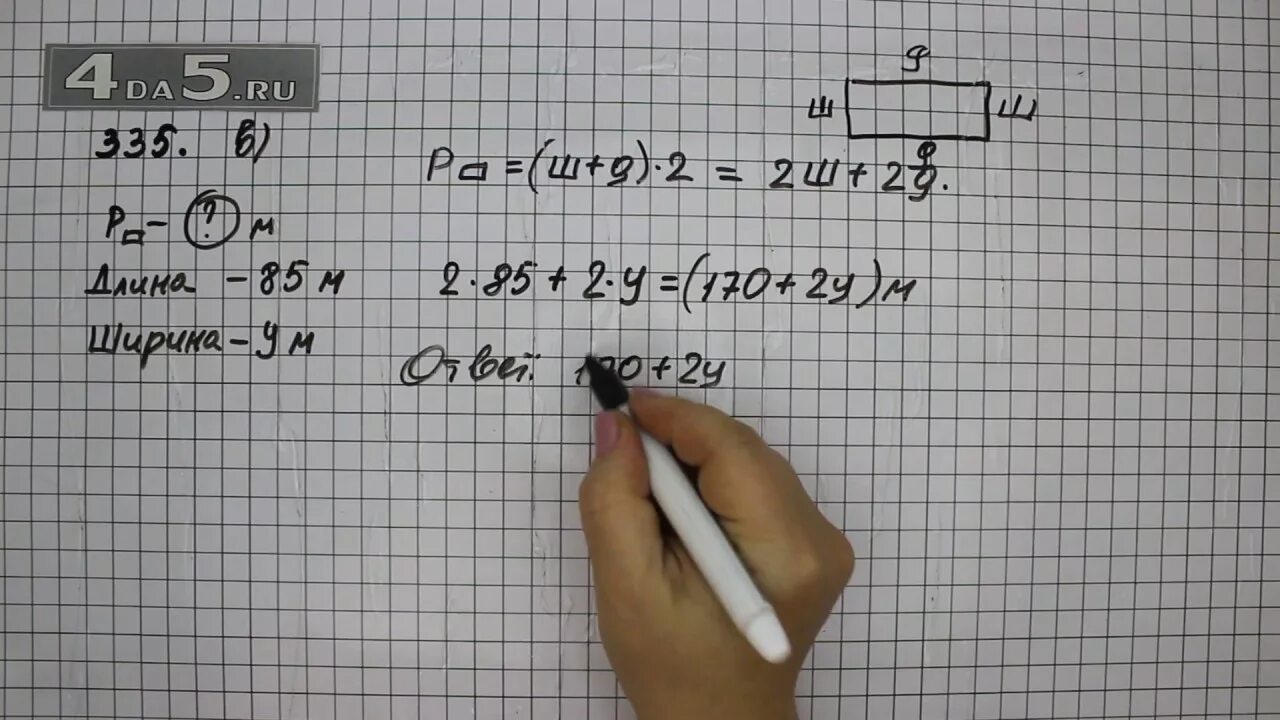 4DA5.RU
335. в)
д
ш ш
д
P▭ = (ш+д)·2 = 2ш + 2д.
P▭ – ? м
Длина – 85 м
Ширина – у м
2·85 + 2·у = (170 + 2у) м
Ответ: 170 + 2у